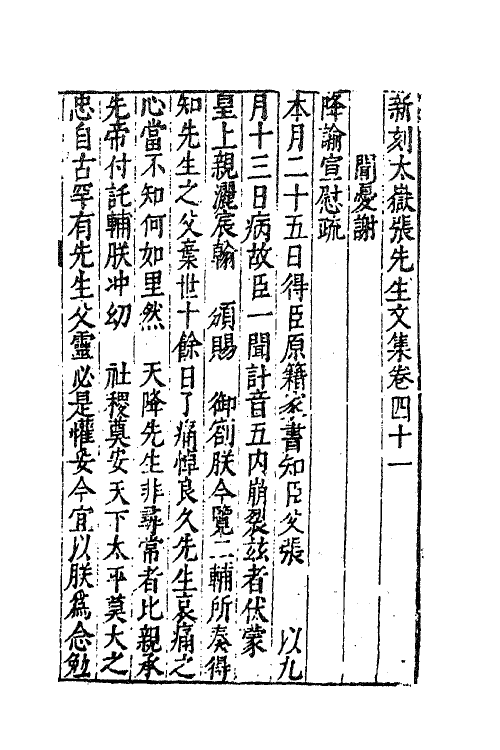 新刻太嶽張先生文集卷四十一
聞憂謝
降諭宣慰疏
本月二十五日得臣原籍家書知臣父張　以九
月十三日病故臣一聞訃音五內崩裂茲者伏蒙
皇上親灑宸翰　頒賜　御劄朕今覽二輔所奏得
知先生之父棄世十餘日了痛悼良久先生哀痛之
心當不知何如里然　天降先生非尋常者比親承
先帝付託輔朕冲幼　社稷奠安天下太平莫大之
忠自古罕有先生父靈必是懽妥今宜以朕爲念勉